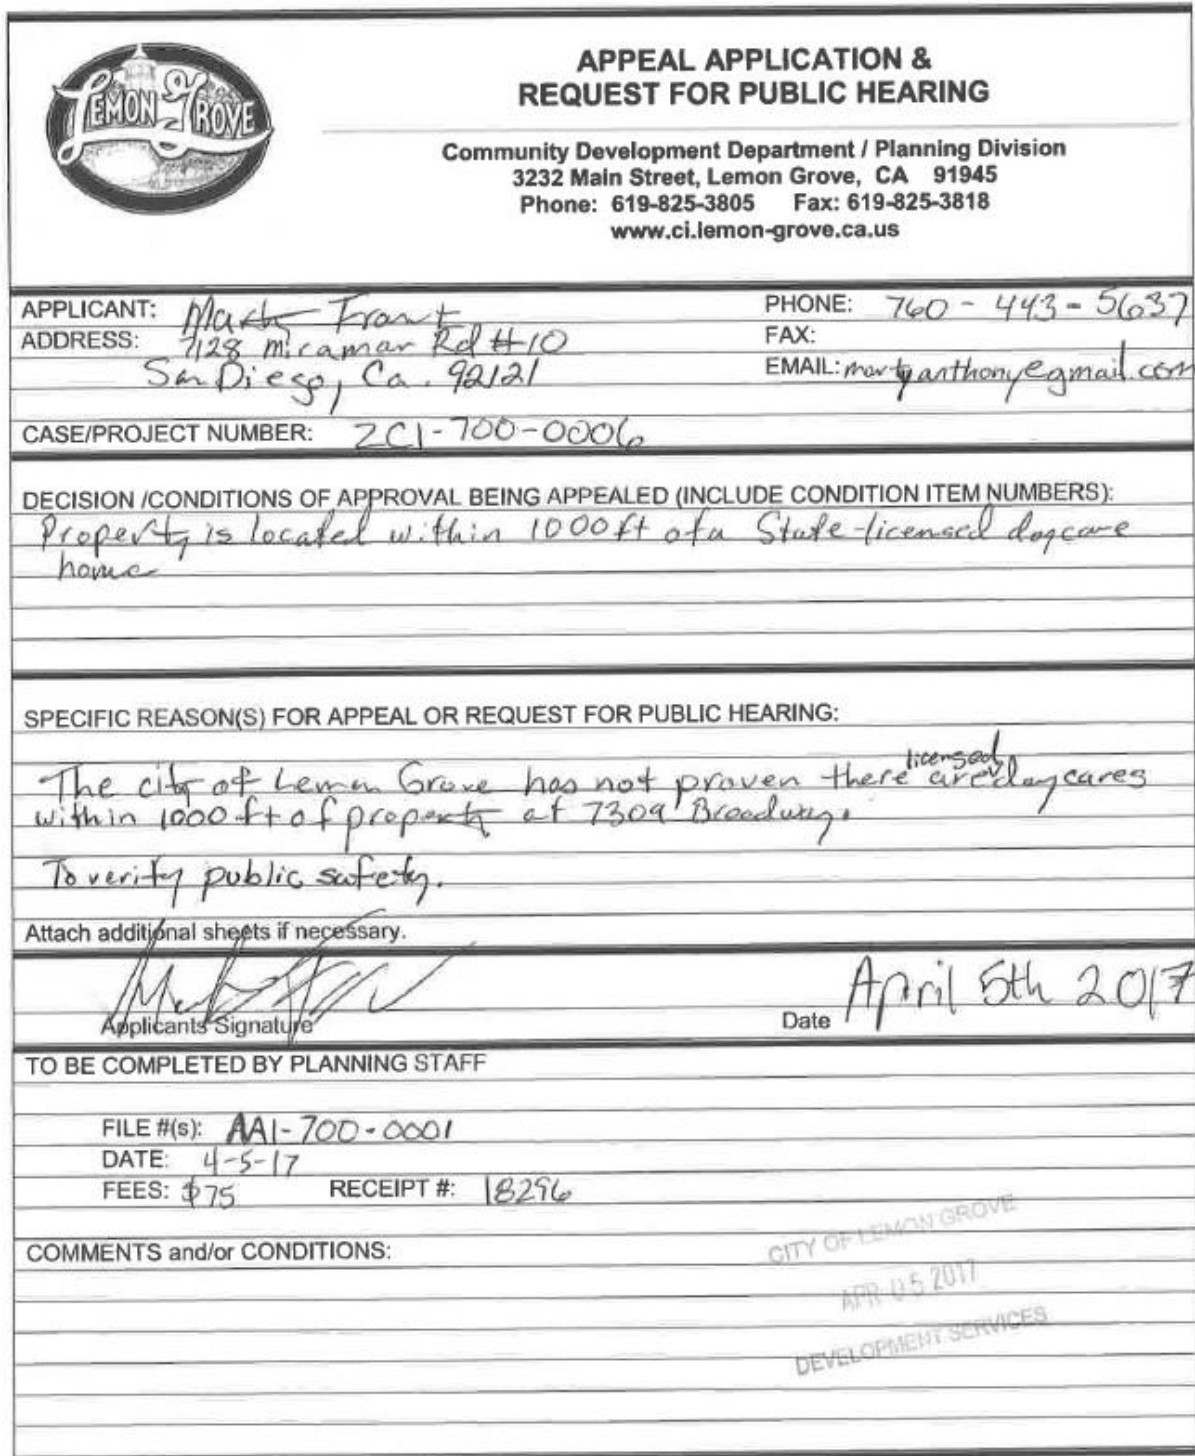 LEMON GROVE
APPEAL APPLICATION &
REQUEST FOR PUBLIC HEARING
Community Development Department / Planning Division
3232 Main Street, Lemon Grove, CA 91945
Phone: 619-825-3805 Fax: 619-825-3818
www.ci.lemon-grove.ca.us
APPLICANT: Marty Frant
PHONE: 760-443-5637
ADDRESS: 7128 Miramar Rd #10
FAX:
San Diego, Ca. 92121
EMAIL: martyanthony@gmail.com
CASE/PROJECT NUMBER: ZC1-700-0006
DECISION /CONDITIONS OF APPROVAL BEING APPEALED (INCLUDE CONDITION ITEM NUMBERS):
Property is located within 1000ft of a State-licensed daycare
home
SPECIFIC REASON(S) FOR APPEAL OR REQUEST FOR PUBLIC HEARING:
The city of Lemon Grove has not proven there are licensed daycares
within 1000 ft of property at 7309 Broadway.
To verify public safety.
Attach additional sheets if necessary.
Applicants Signature
Date April 5th 2017
TO BE COMPLETED BY PLANNING STAFF
FILE #(s): AA1-700-0001
DATE: 4-5-17
FEES: $75 RECEIPT #: 18296
COMMENTS and/or CONDITIONS:
CITY OF LEMON GROVE
APR 05 2017
DEVELOPMENT SERVICES